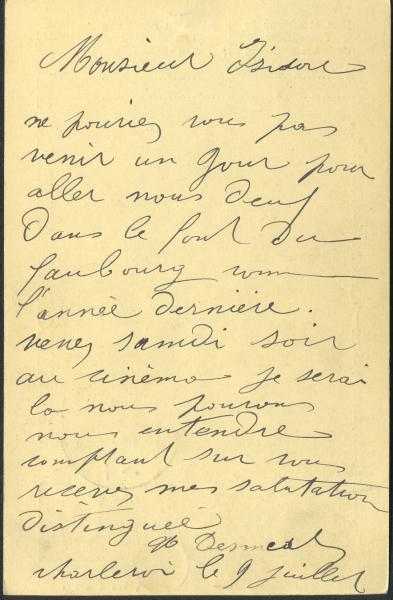 Monsieur Isidore
ne pouriez vous pas
venir un jour pour
aller nous deux
Dans le font Du
faubourg comme
l'année dernière.
venez samdi soir
au cinéma je serai
la nous pouvons
nous entendre
comptant sur vous
recevez mes salutation
distinguée
Desmedt
charleroi le 9 juillet